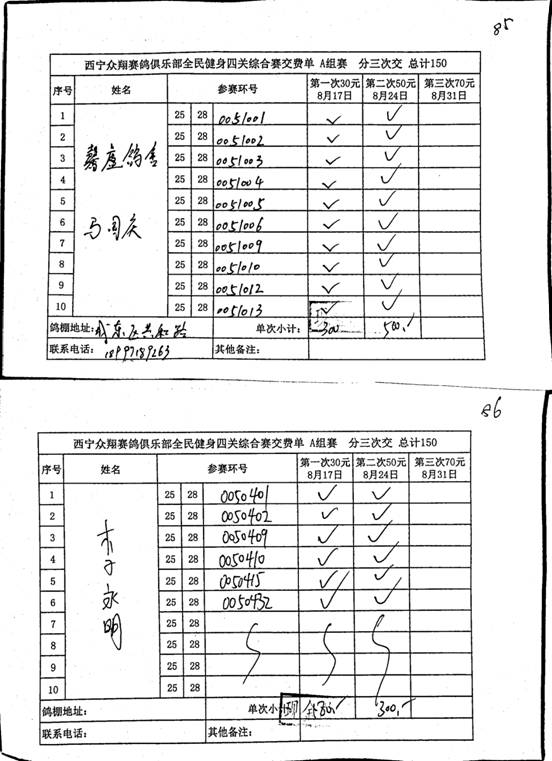 85
西宁众翔赛鸽俱乐部全民健身四关综合赛交费单 A组赛 分三次交 总计150
序号 姓名 参赛环号 第一次30元 8月17日 第二次50元 8月24日 第三次70元 8月31日
1 25 28 0051001 ✓ ✓
2 25 28 0051002 ✓ ✓
3 馨庭鸽舍 25 28 0051003 ✓ ✓
4 25 28 0051004 ✓ ✓
5 25 28 0051005 ✓ ✓
6 马国庆 25 28 0051006 ✓ ✓
7 25 28 0051009 ✓ ✓
8 25 28 0051010 ✓ ✓
9 25 28 0051012 ✓ ✓
10 25 28 0051013 ✓ ✓
鸽棚地址:城东区共和路 单次小计: 300 500.-
联系电话: 18997189263 其他备注:
86
西宁众翔赛鸽俱乐部全民健身四关综合赛交费单 A组赛 分三次交 总计150
序号 姓名 参赛环号 第一次30元 8月17日 第二次50元 8月24日 第三次70元 8月31日
1 25 28 0050401 ✓ ✓
2 25 28 0050402 ✓ ✓
3 李永明 25 28 0050409 ✓ ✓
4 25 28 0050410 ✓ ✓
5 25 28 0050415 ✓ ✓
6 25 28 0050432 ✓ ✓
7 25 28
8 25 28
9 25 28
10 25 28
鸽棚地址: 单次小计 300.-
联系电话: 其他备注: